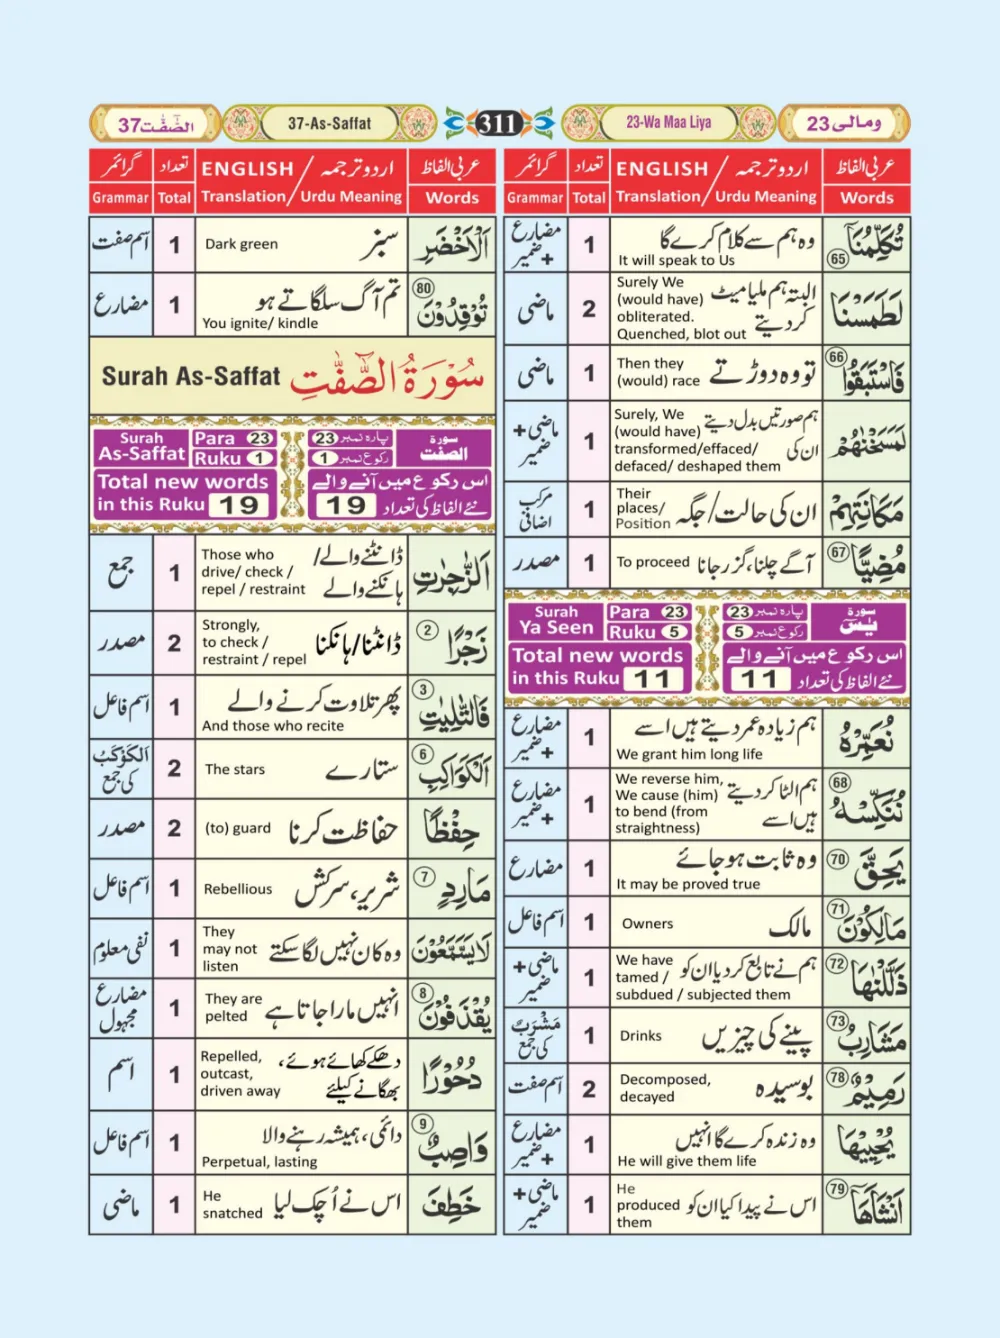 ومالی 23
23-Wa Maa Liya
311
37-As-Saffat
الصّٰفّٰت 37
عربی الفاظ
اردو ترجمہ / ENGLISH
تعداد
گرائمر
Words
Translation / Urdu Meaning
Total
Grammar
تُكَلِّمُنَاۤ 65
وہ ہم سے کلام کرے گا
It will speak to Us
1
مضارع + ضمیر
لَطَمَسْنَا
البتہ ہم ملیا میٹ کر دیتے
Surely We
(would have)
obliterated.
Quenched, blot out
2
ماضی
فَاسْتَبَقُوا 66
تو وہ دوڑتے
Then they
(would) race
1
ماضی
لَمَسَخْنٰهُمْ
ہم صورتیں بدل دیتے ان کی
Surely, We
(would have)
transformed/effaced/
defaced/ deshaped them
1
ماضی + ضمیر
مَكَانَتِهِمْ
ان کی حالت/جگہ
Their
places/
Position
1
مرکب اضافی
مُضِيًّا 67
آگے چلنا، گزر جانا
To proceed
1
مصدر
Surah
Ya Seen
Para 23
Ruku 5
پارہ نمبر 23
رکوع نمبر 5
سورۃ
يٰسٓ
Total new words
in this Ruku 11
اس رکوع میں آنے والے
نئے الفاظ کی تعداد 11
نُعَمِّرْهُ
ہم زیادہ عمر دیتے ہیں اسے
We grant him long life
1
مضارع + ضمیر
نُنَكِّسْهُ 68
ہم الٹا کر دیتے ہیں اسے
We reverse him,
We cause (him)
to bend (from
straightness)
1
مضارع + ضمیر
يَحِقَّ 70
وہ ثابت ہو جائے
It may be proved true
1
مضارع
مَالِكُوْنَ 71
مالک
Owners
1
اسم فاعل
ذَلَّلْنٰهَا 72
ہم نے تابع کر دیا ان کو
We have
tamed /
subdued / subjected them
1
ماضی + ضمیر
مَشَارِبُ 73
پینے کی چیزیں
Drinks
1
مَشْرَبٌ کی جمع
رَمِيْمٌ 78
بوسیدہ
Decomposed,
decayed
2
اسم صفت
يُحْيِيْهَا
وہ زندہ کرے گا انہیں
He will give them life
1
مضارع + ضمیر
اَنْشَاَهَاۤ 79
اس نے پیدا کیا ان کو
He
produced
them
1
ماضی + ضمیر
عربی الفاظ
اردو ترجمہ / ENGLISH
تعداد
گرائمر
Words
Translation / Urdu Meaning
Total
Grammar
الْاَخْضَرِ
سبز
Dark green
1
اسم صفت
تُوْقِدُوْنَ 80
تم آگ سلگاتے ہو
You ignite/ kindle
1
مضارع
Surah As-Saffat سُوْرَةُ الصّٰٓفّٰتِ
Surah
As-Saffat
Para 23
Ruku 1
پارہ نمبر 23
رکوع نمبر 1
سورۃ
الصفت
Total new words
in this Ruku 19
اس رکوع میں آنے والے
نئے الفاظ کی تعداد 19
الزّٰجِرٰتِ
ڈانٹنے والے/ ہانکنے والے
Those who
drive/ check /
repel / restraint
1
جمع
زَجْرًا 2
ڈانٹنا/ہانکنا
Strongly,
to check /
restraint / repel
2
مصدر
فَالتّٰلِيٰتِ 3
پھر تلاوت کرنے والے
And those who recite
1
اسم فاعل
الْكَوَاكِبِ 6
ستارے
The stars
2
اَلْكَوْكَبُ کی جمع
حِفْظًا
حفاظت کرنا
(to) guard
2
مصدر
مَارِدٍ 7
شریر، سرکش
Rebellious
1
اسم فاعل
لَا يَسَّمَّعُوْنَ
وہ کان نہیں لگا سکتے
They
may not
listen
1
نفی معلوم
يُقْذَفُوْنَ 8
انہیں مارا جاتا ہے
They are
pelted
1
مضارع مجہول
دُحُوْرًا
دھکے کھائے ہوئے، بھگانے کیلئے
Repelled,
outcast,
driven away
1
اسم
وَاصِبٌ 9
دائمی، ہمیشہ رہنے والا
Perpetual, lasting
1
اسم فاعل
خَطِفَ
اس نے اُچک لیا
He
snatched
1
ماضی